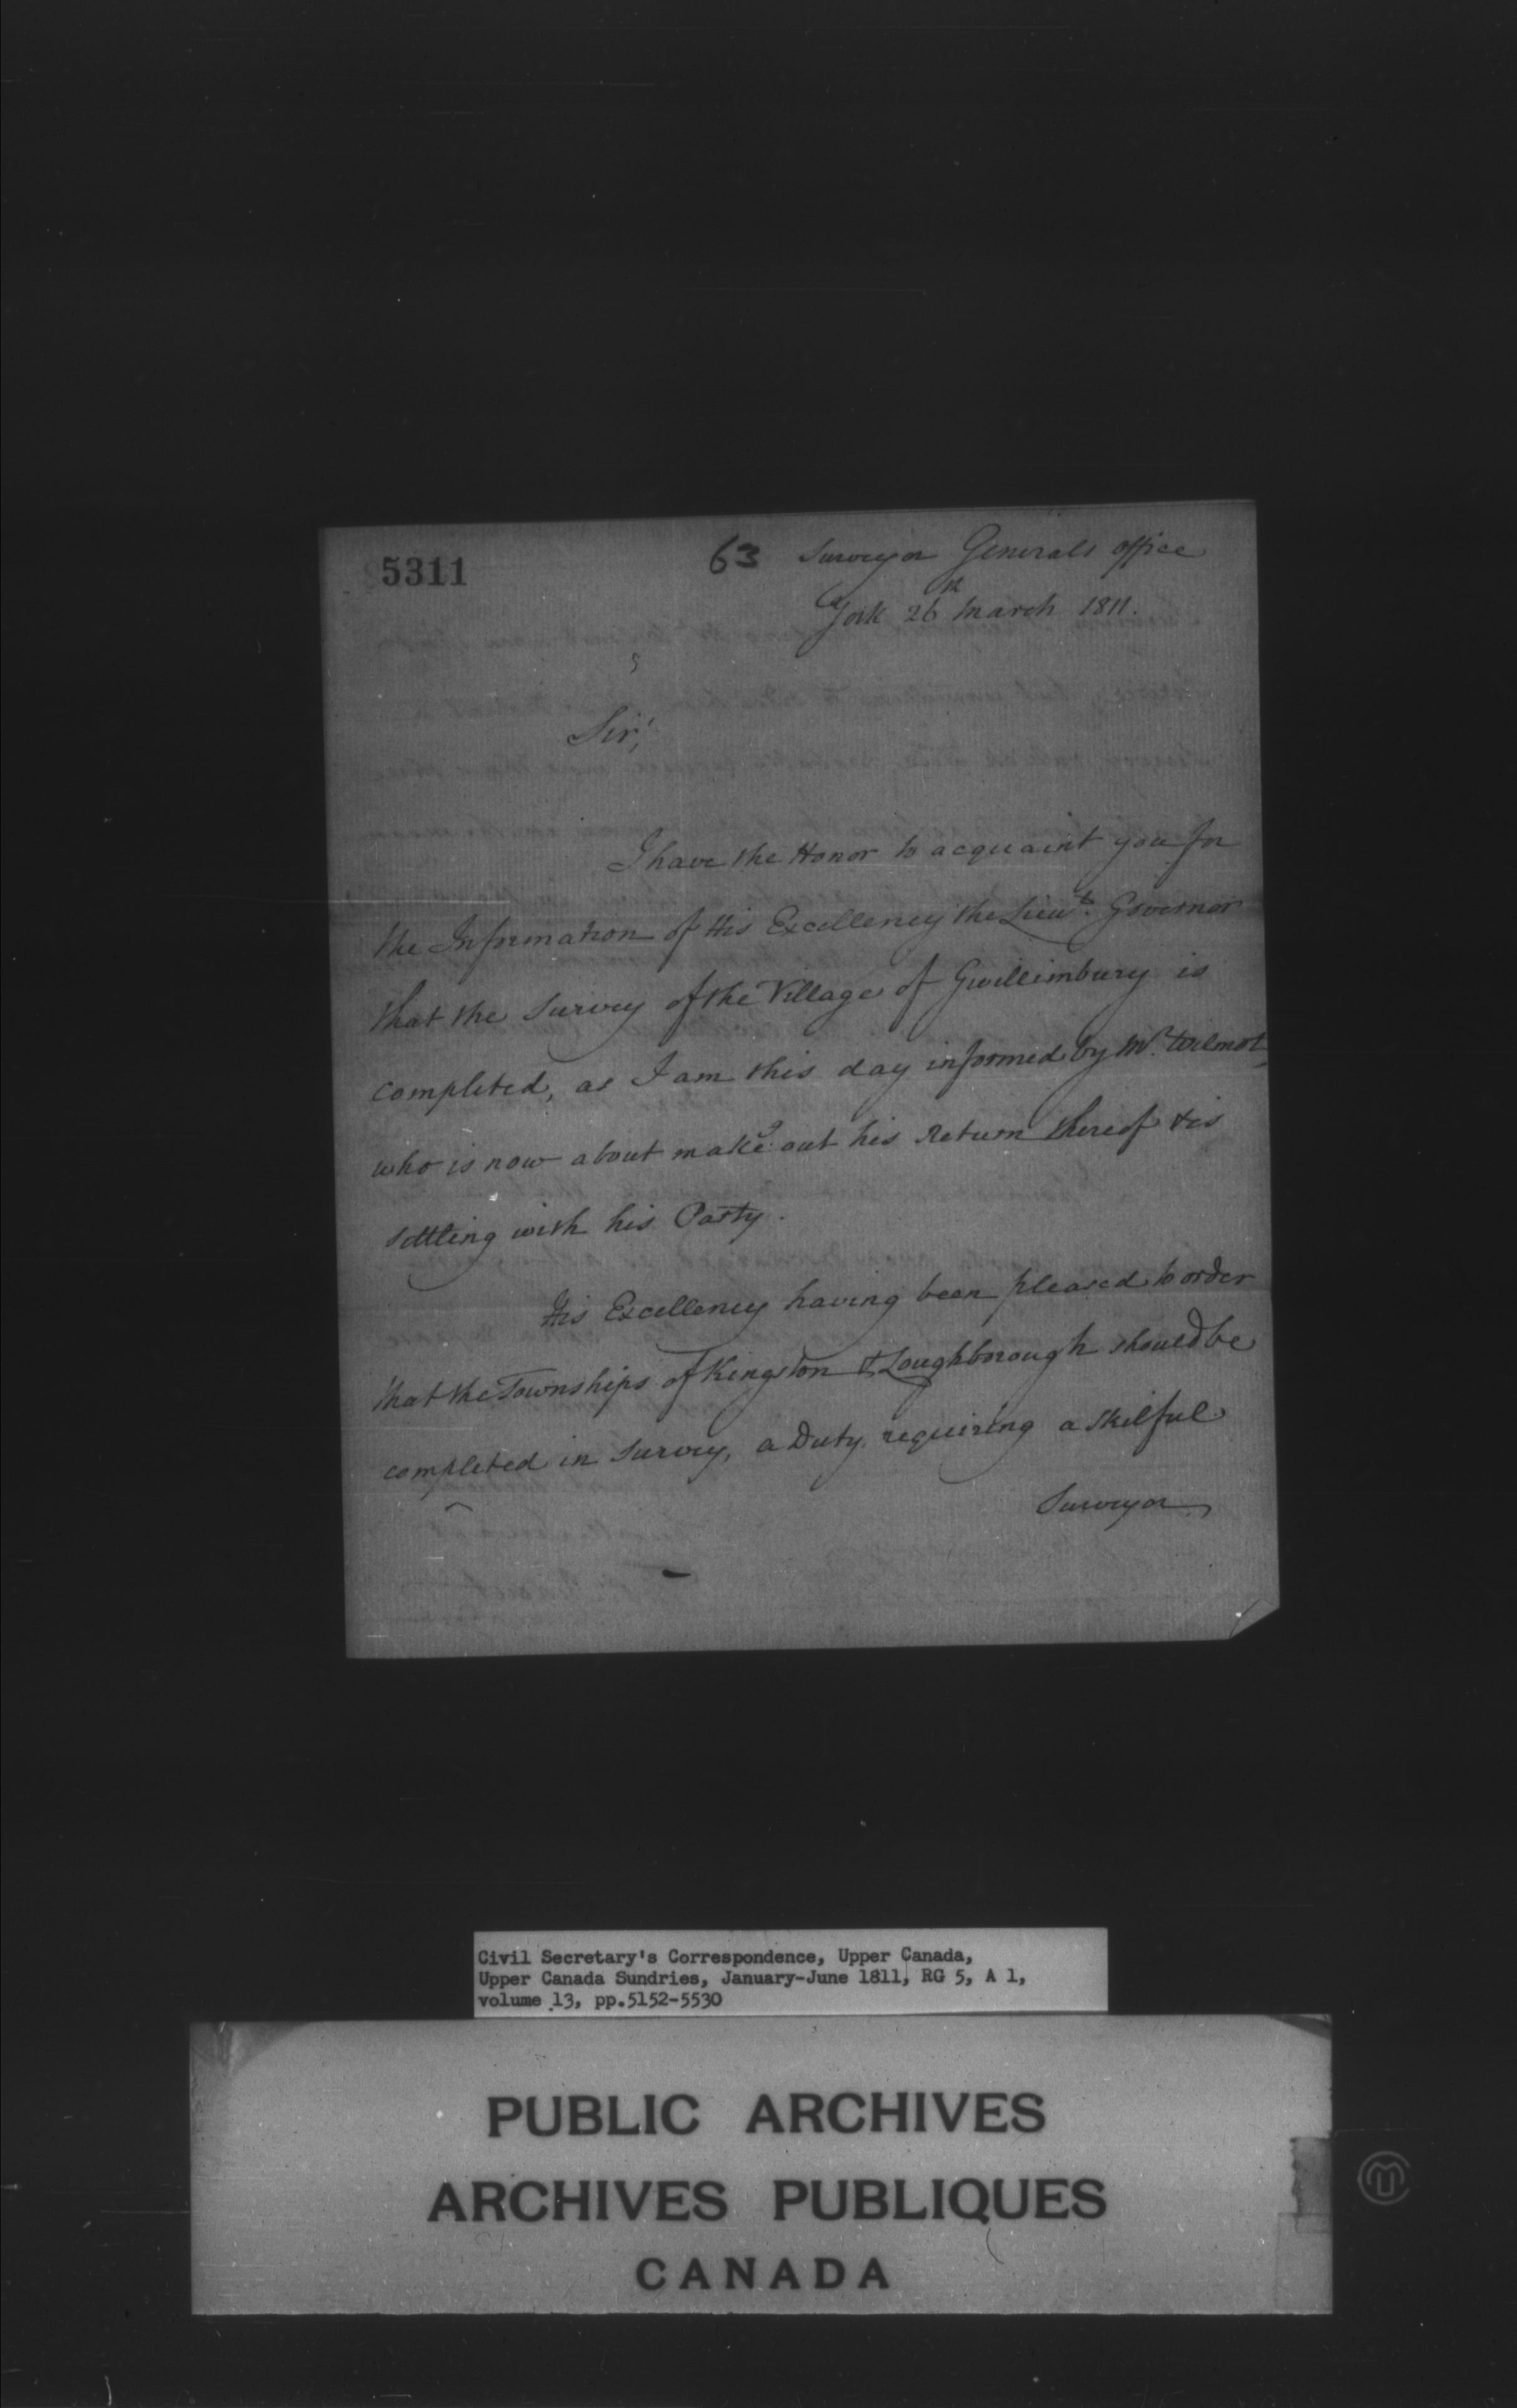 5311
63 Surveyor Generals office
York 26th March 1811.
Sir,
I have the Honor to acquaint you for
the Information of His Excellency the Lieut. Governor
that the Survey of the Village of Gwillimbury is
completed, as I am this day informed by Mr. Wilmot
who is now about makeg. out his Return thereof & is
settling with his Party.
His Excellency having been pleased to order
that the Townships of Kingston & Loughborough should be
completed in Survey, a Duty requiring a skilful
Surveyor
Civil Secretary's Correspondence, Upper Canada,
Upper Canada Sundries, January-June 1811, RG 5, A 1,
volume 13, pp.5152-5530
PUBLIC ARCHIVES
ARCHIVES PUBLIQUES
CANADA